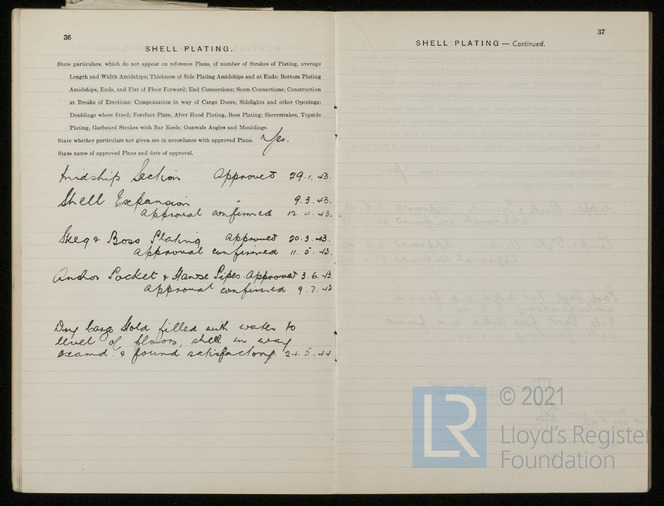 36
SHELL PLATING.
State particulars, which do not appear on reference Plans, of number of Strakes of Plating, average
Length and Width Amidships; Thickness of Side Plating Amidships and at Ends; Bottom Plating
Amidships, Ends, and Flat of Floor Forward; End Connections; Seam Connections; Construction
at Breaks of Erections; Compensation in way of Cargo Doors, Sidelights and other Openings;
Doublings where fitted; Forefoot Plate, After Hood Plating, Boss Plating; Sheerstrakes, Topside
Plating, Garboard Strakes with Bar Keels; Gunwale Angles and Mouldings.
State whether particulars not given are in accordance with approved Plans. Yes.
State name of approved Plans and date of approval.
Midship Section approved 29.1.43.
Shell Expansion " 9.3.43.
approval confirmed 12.4.43.
Skeg & Boss Plating approved 20.3.43.
approval confirmed 11.5.43.
Anchor Pocket & Hawse Pipes approved 3.6.43.
approval confirmed 9.7.43
Dry Cargo Hold filled with water to
level of floors, shell in way
examd & found satisfactory 24.5.44
37
SHELL PLATING — Continued.
LR
© 2021
Lloyd's Register
Foundation